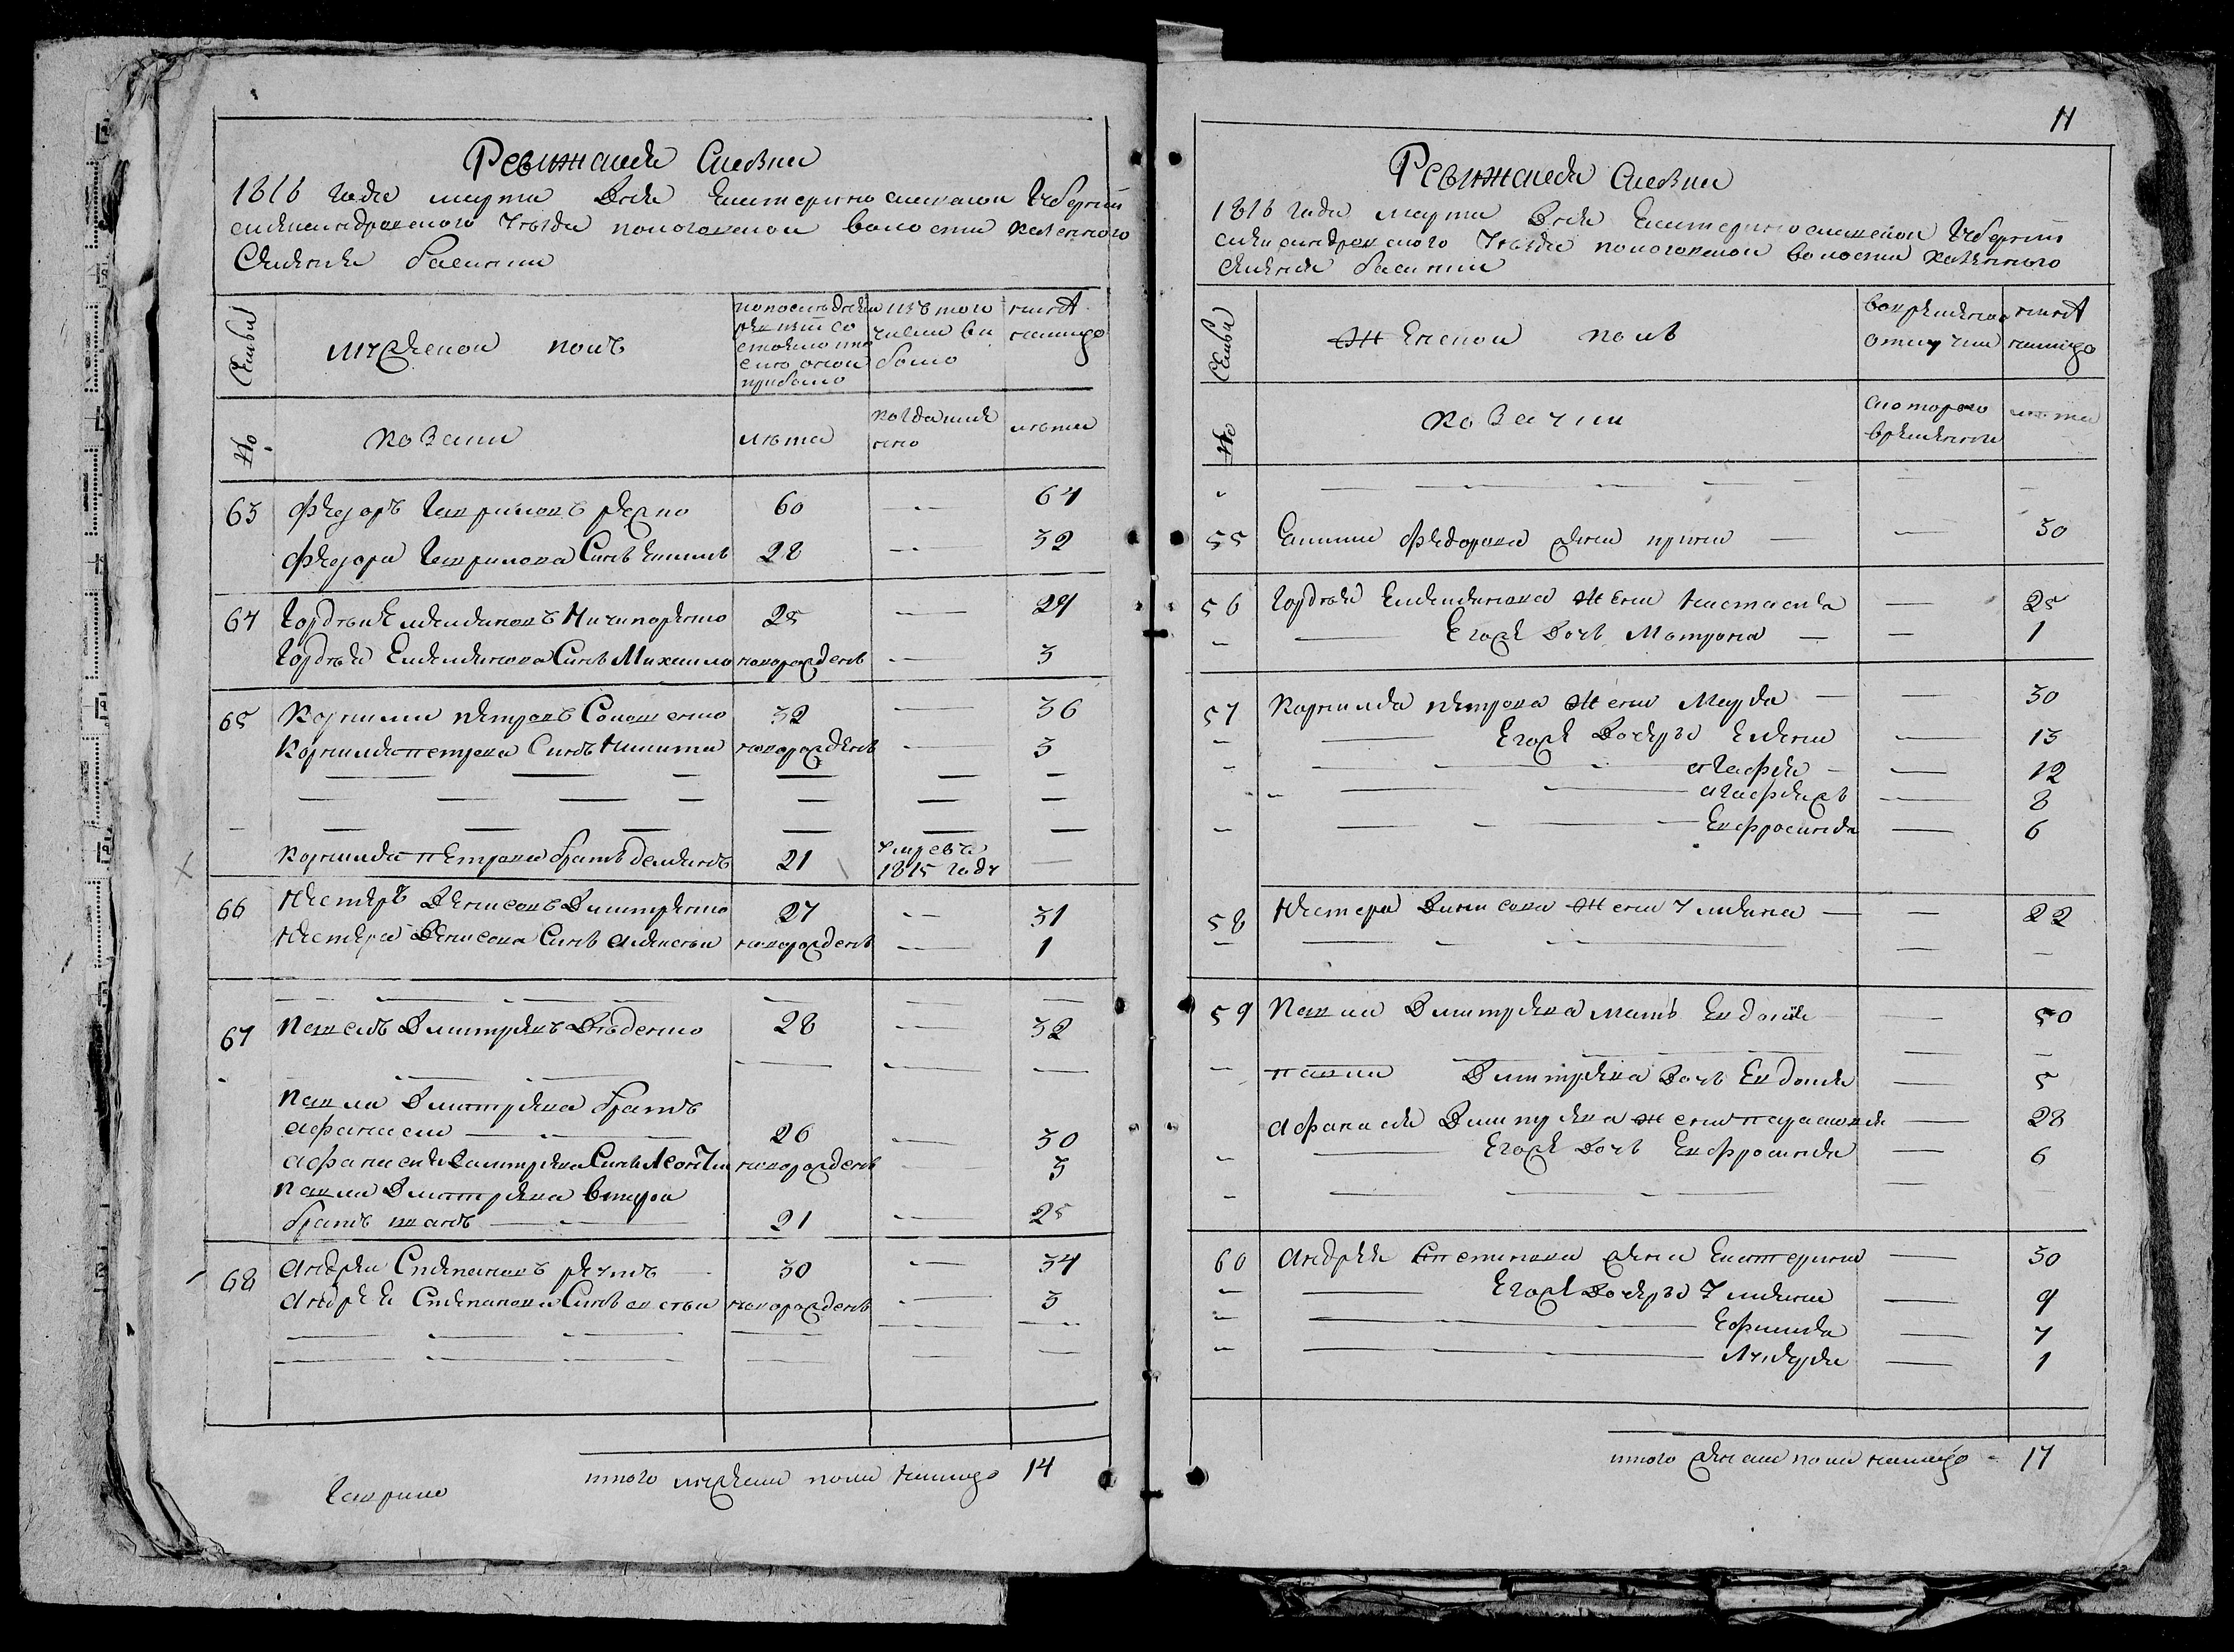 Ревижская Сказка
1816 года марта Дня Екатеринославской Губернии
александровского Уезда пологовской волости казенного
Селения басани
Семьи
мужеской полъ
по последней ревизии состояло и после оной прибыло
изъ того числа выбыло
ныне налицо
№
козаки
лета
когда именно
лета
63 Федоръ Гавриловъ 60 — 64
Федора Гаврилова Сынъ 28 — 32
64 Гордѣй Емельяновъ Ничипоренко 25 — 29
Гордѣя Емельянова Сынъ Михайло новорожденъ — 3
65 Корнилй петровъ 32 — 36
Корнилия петрова Сынъ Никита новорожденъ — 3
— — —
— — —
Корнилия петрова братъ демянъ 21 умре въ 1815 году —
66 Нестеръ Денисовъ Дмитренко 27 — 31
Нестера Денисова Сынъ алексѣй новорожденъ — 1
— — —
67 Павелъ Дмитревъ Дяденко 28 — 32
— — —
Павла Дмитрева братъ
афанасей — 26 — 30
афанасия Дмитрева Сынъ Леонтий новорожденъ — 3
Павла Дмитрева второй
братъ иванъ — 21 — 25
68 Андрей Степановъ 30 — 34
Андрея Степанова Сынъ новорожденъ — 3
— — —
— — —
итого мужеска пола налицо 14
Гаврило
11
Ревижская Сказка
1816 года марта Дня Екатеринославской Губернии
александровского Уезда пологовской волости казенного
Селения басани
Семьи
Женской полъ
во временной отлучки
ныне налицо
№
козачки
с которого времени
лета
— — —
55 Федорова жена — — 30
56 Гордѣя Емельянова Жена Настасия — 25
— — Егоже Дочь Матрона — — 1
57 Корнилия петрова Жена Марфа — — 30
— — Егоже Дочеръи Елена — 13
— — агафия — — 12
— — — 8
— — Евфросиния — 6
58 Нестера Денисова Жена Улияна — — 22
— — —
59 Павла Дмитрева мать Евдокия — 50
— — —
павла Дмитрева Дочь Евдокия — 5
афанасия Дмитрева жена параскевия — 28
— — Егоже Дочь Евфросиния — 6
— — —
60 Андрея Степанова жена Екатерина — 30
— — Егоже Дочеръи Улияна — 9
— — Ефимия — 7
— — Лукерия — 1
итого женска пола налицо - 17